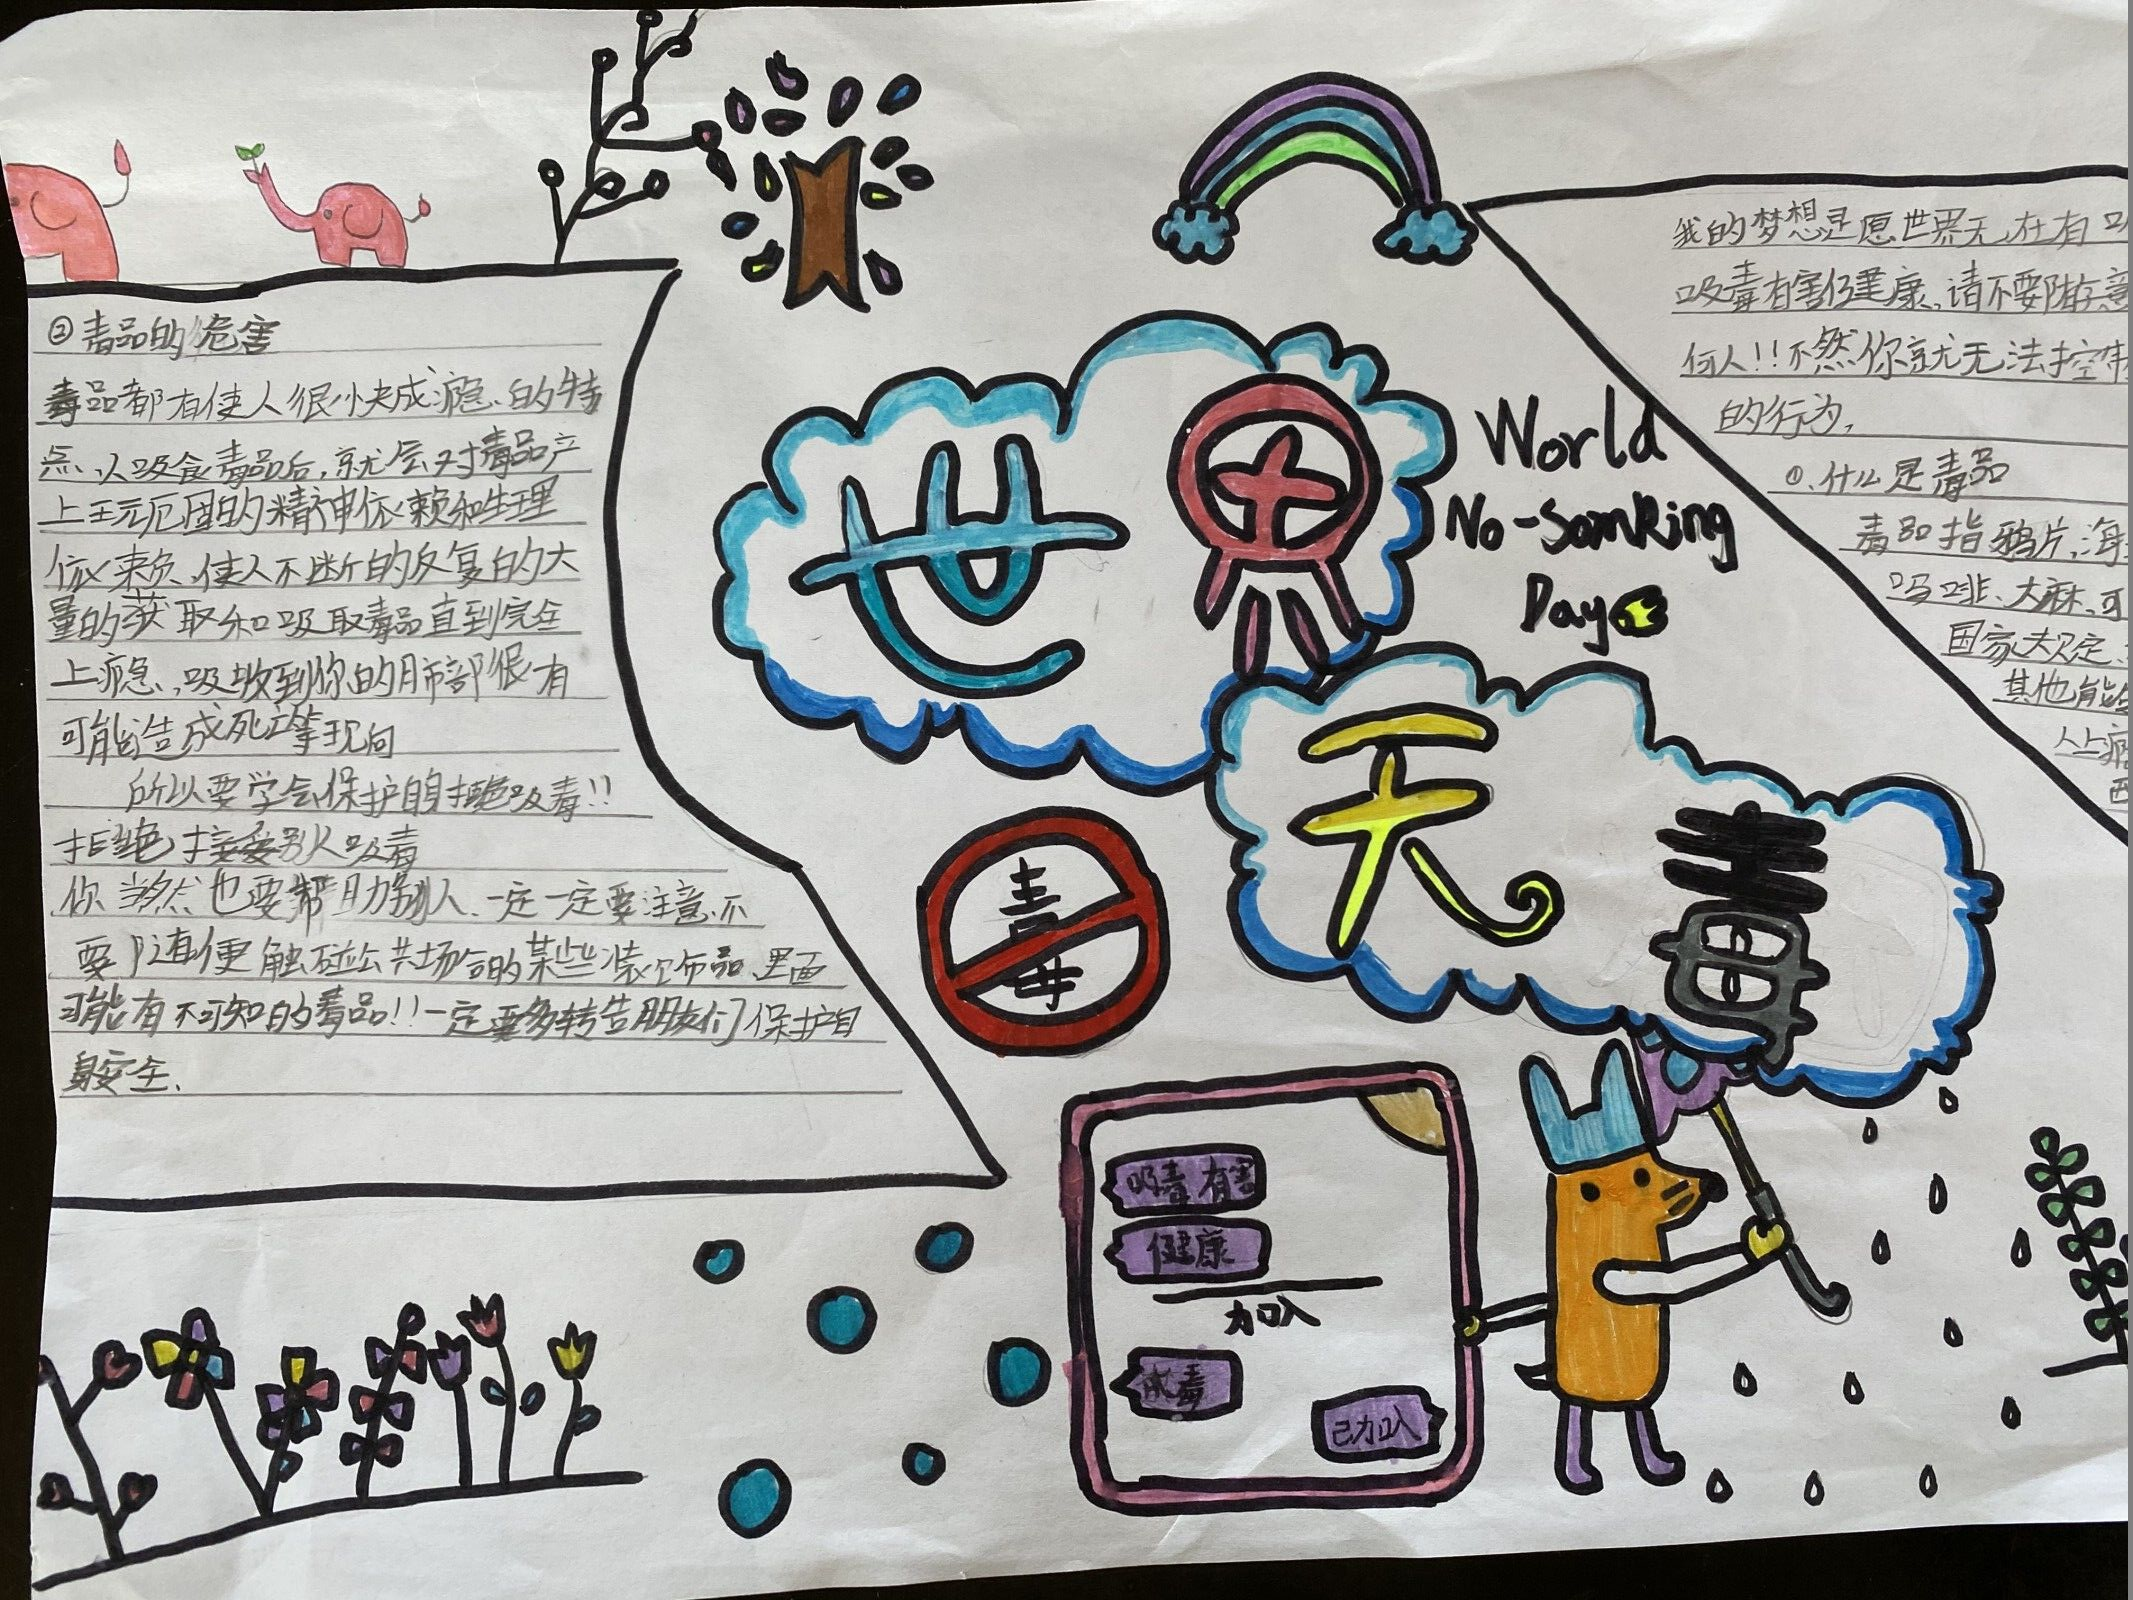 ②毒品的危害
毒品都有使人很快成瘾、的特
点、人吸食毒品后,就会对毒品产
上王元厄固的精神依赖和生理
依赖、使人不断的反复的大
量的获取和吸取毒品直到完全
上瘾、,吸收到你的肺部很有
可能造成死亡等现向
所以要学会保护自身拒绝吸毒!!
拒绝接受别人吸毒
你当然也要帮助别人、一定一定要注意、不
要随便触碰公共场合的某些装饰品、里面
可能有不可知的毒品!!一定要多转告朋友们保护自
身安全、
世界
World
No-Somking
Day
无毒
毒
吸毒有害
健康
加入
戒毒
已加入
我的梦想是愿世界无、在有
吸毒有害健康、请不要随意
何人!!不然你就无法控制
的行为,
①、什么是毒品
毒品指鸦片,海
吗啡、大麻、可
国家规定、
其他能
人上瘾
西